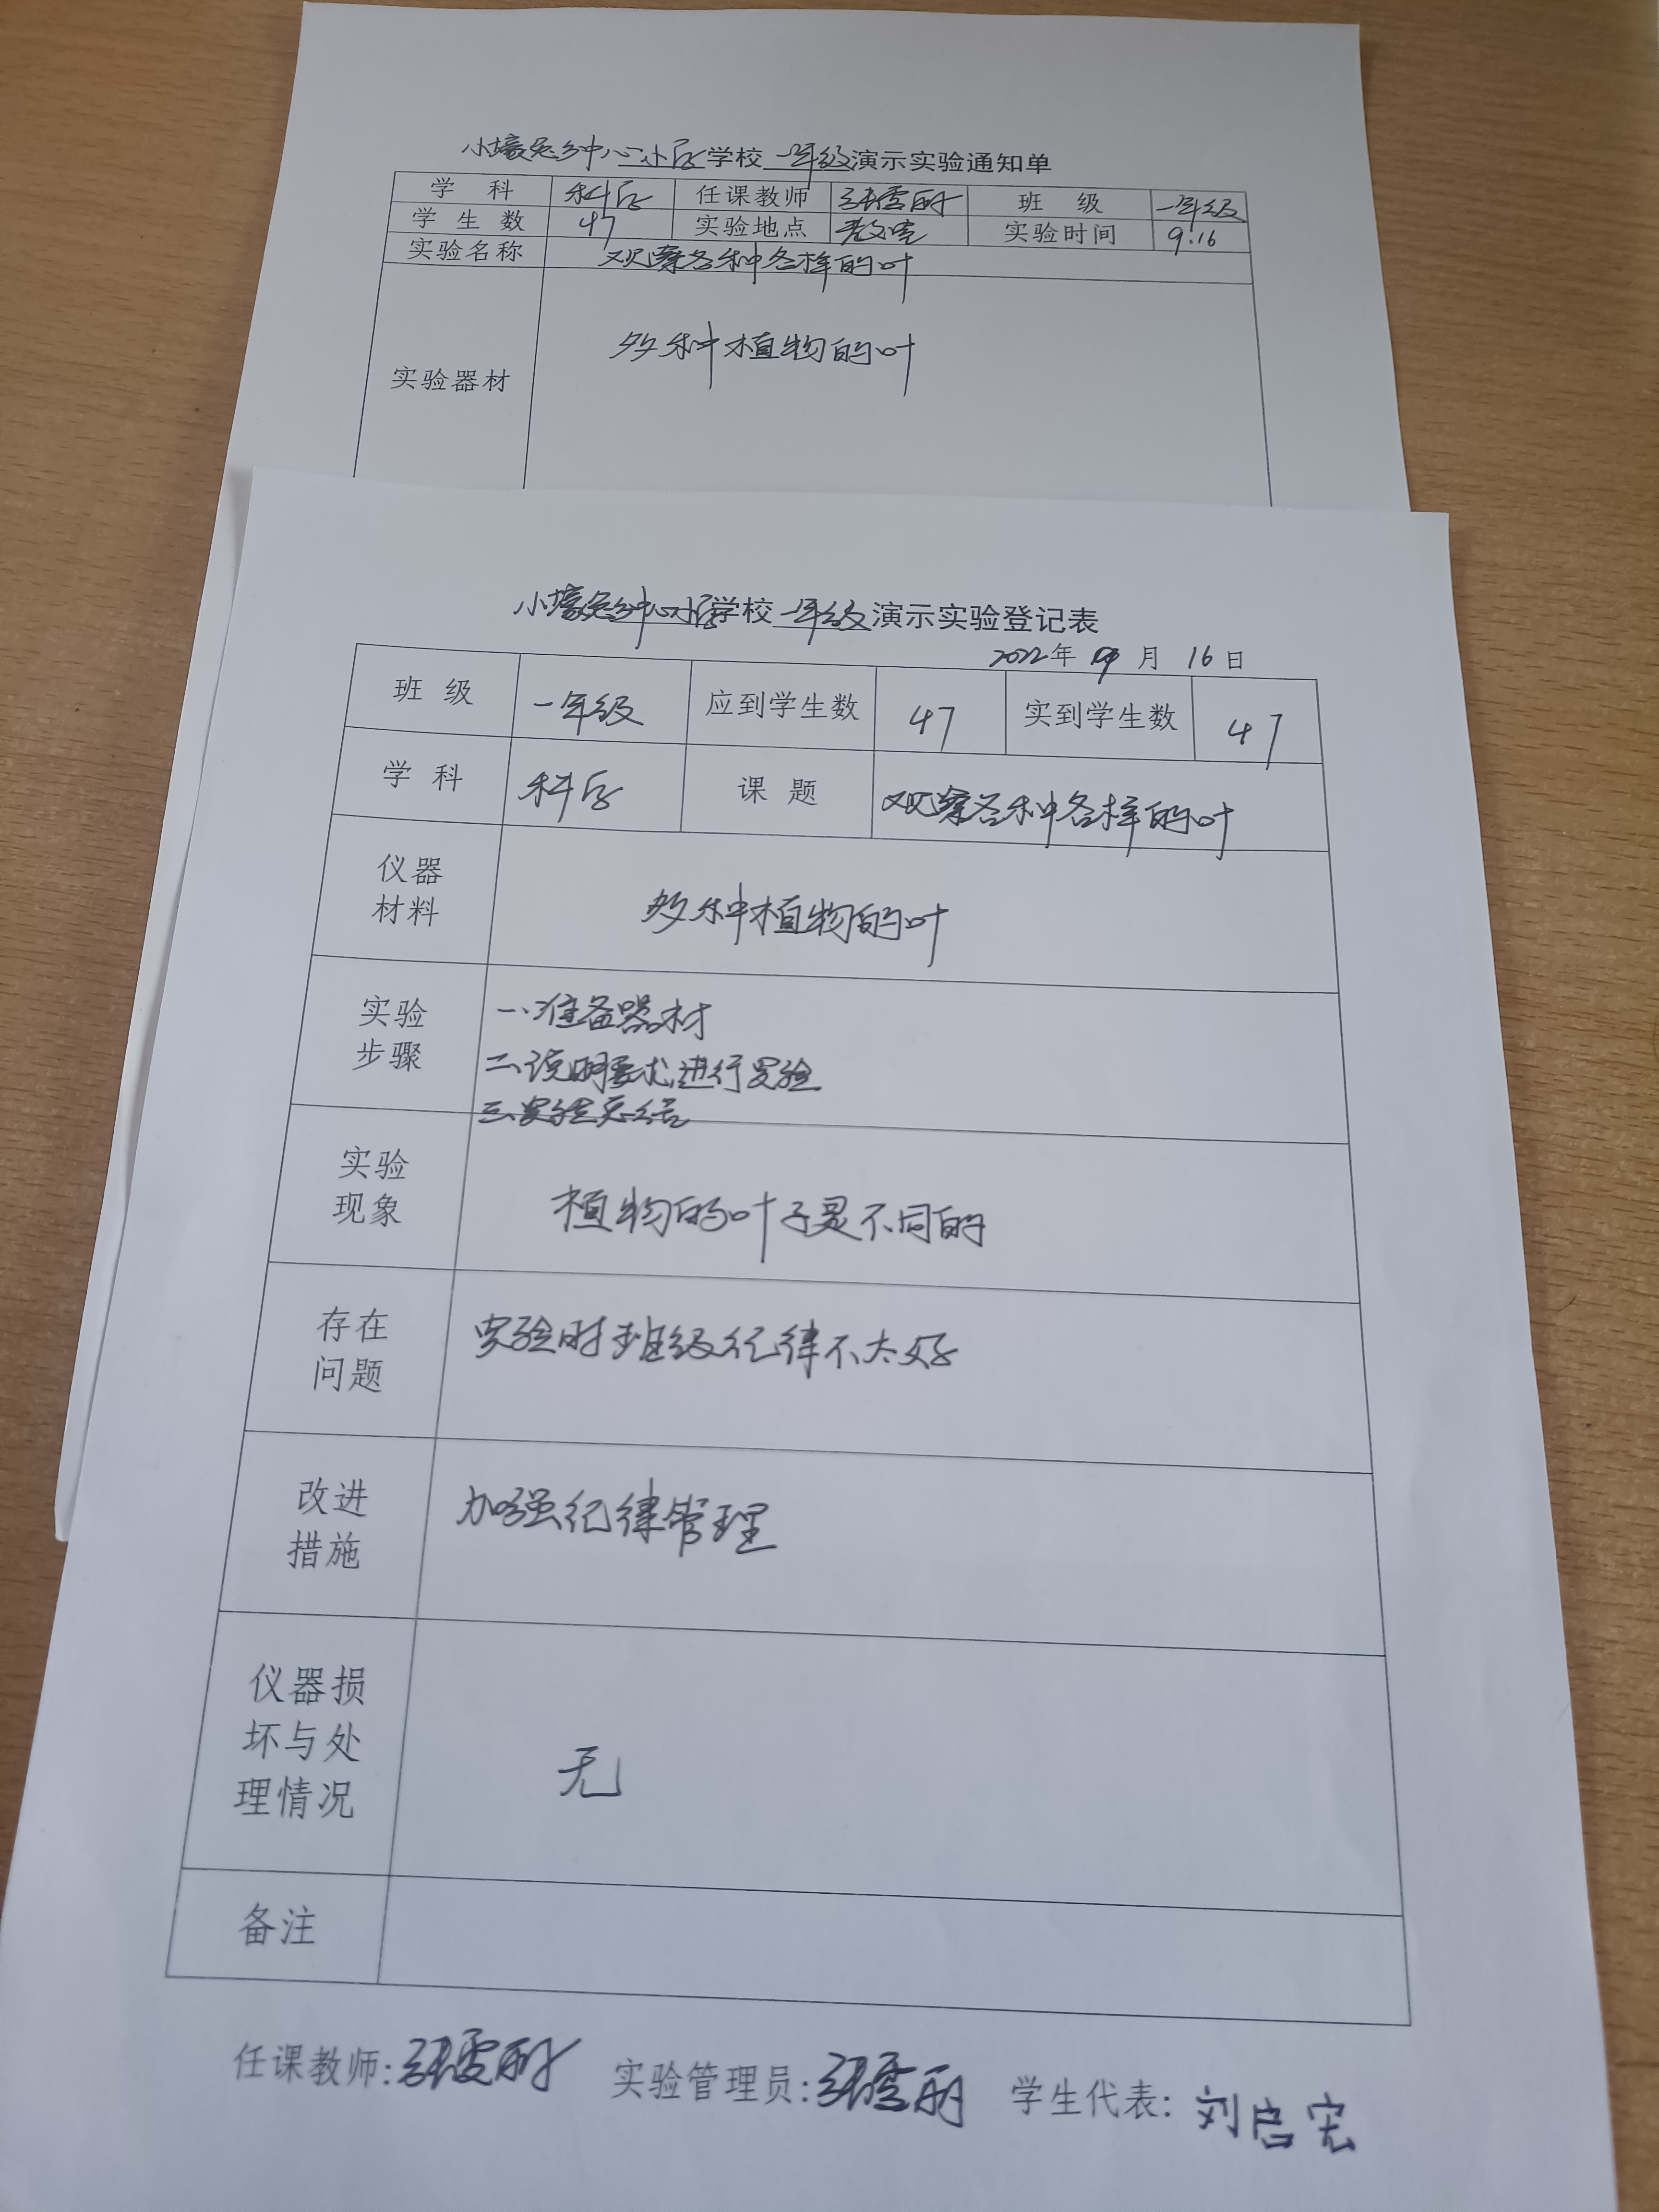 小壕兔乡中心小学学校一年级演示实验通知单
学 科 科学 任课教师 张雪丽 班 级 一年级
学 生 数 47 实验地点 教室 实验时间 9.16
实验名称 观察各种各样的叶
实验器材 多种植物的叶
小壕兔乡中心小学学校一年级演示实验登记表
2022年 09 月 16日
班 级 一年级 应到学生数 47 实到学生数 47
学 科 科学 课 题 观察各种各样的叶
仪器
材料
多种植物的叶
实验
步骤
一、准备器材
二、说明要求,进行实验
三、实验总结
实验
现象
植物的叶子是不同的
存在
问题
实验时班级纪律不太好
改进
措施
加强纪律管理
仪器损
坏与处
理情况
无
备注
任课教师:张雪丽 实验管理员:张雪丽 学生代表:刘启宏